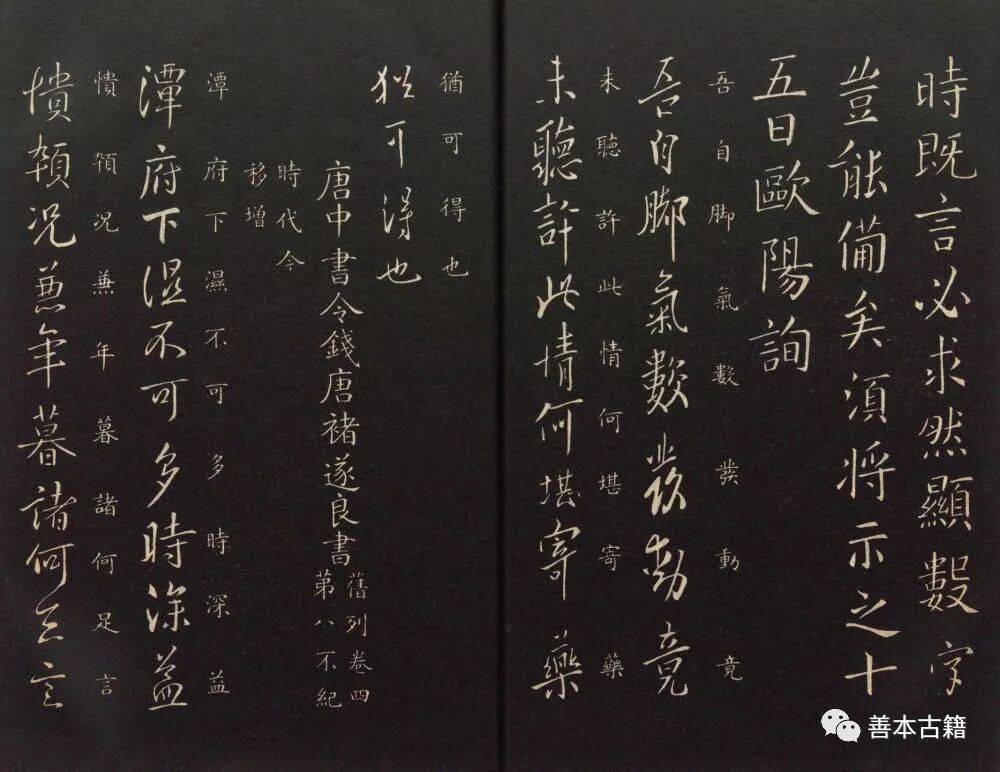 時既言必求然顯數字
豈能備矣須將示之十
五日歐陽詢
吾自脚氣數發動竟
吾自脚氣數發動竟
未聽許此情何堪寄藥
未聽許此情何堪寄藥
猶可得也
猶可得也
唐中書令錢唐褚遂良書
舊列卷四
第八不紀
時代今
移增
潭府下濕不可多時深益
潭府下濕不可多時深益
憒頟况兼年暮諸何足言
憒頟况兼年暮諸何足言
善本古籍